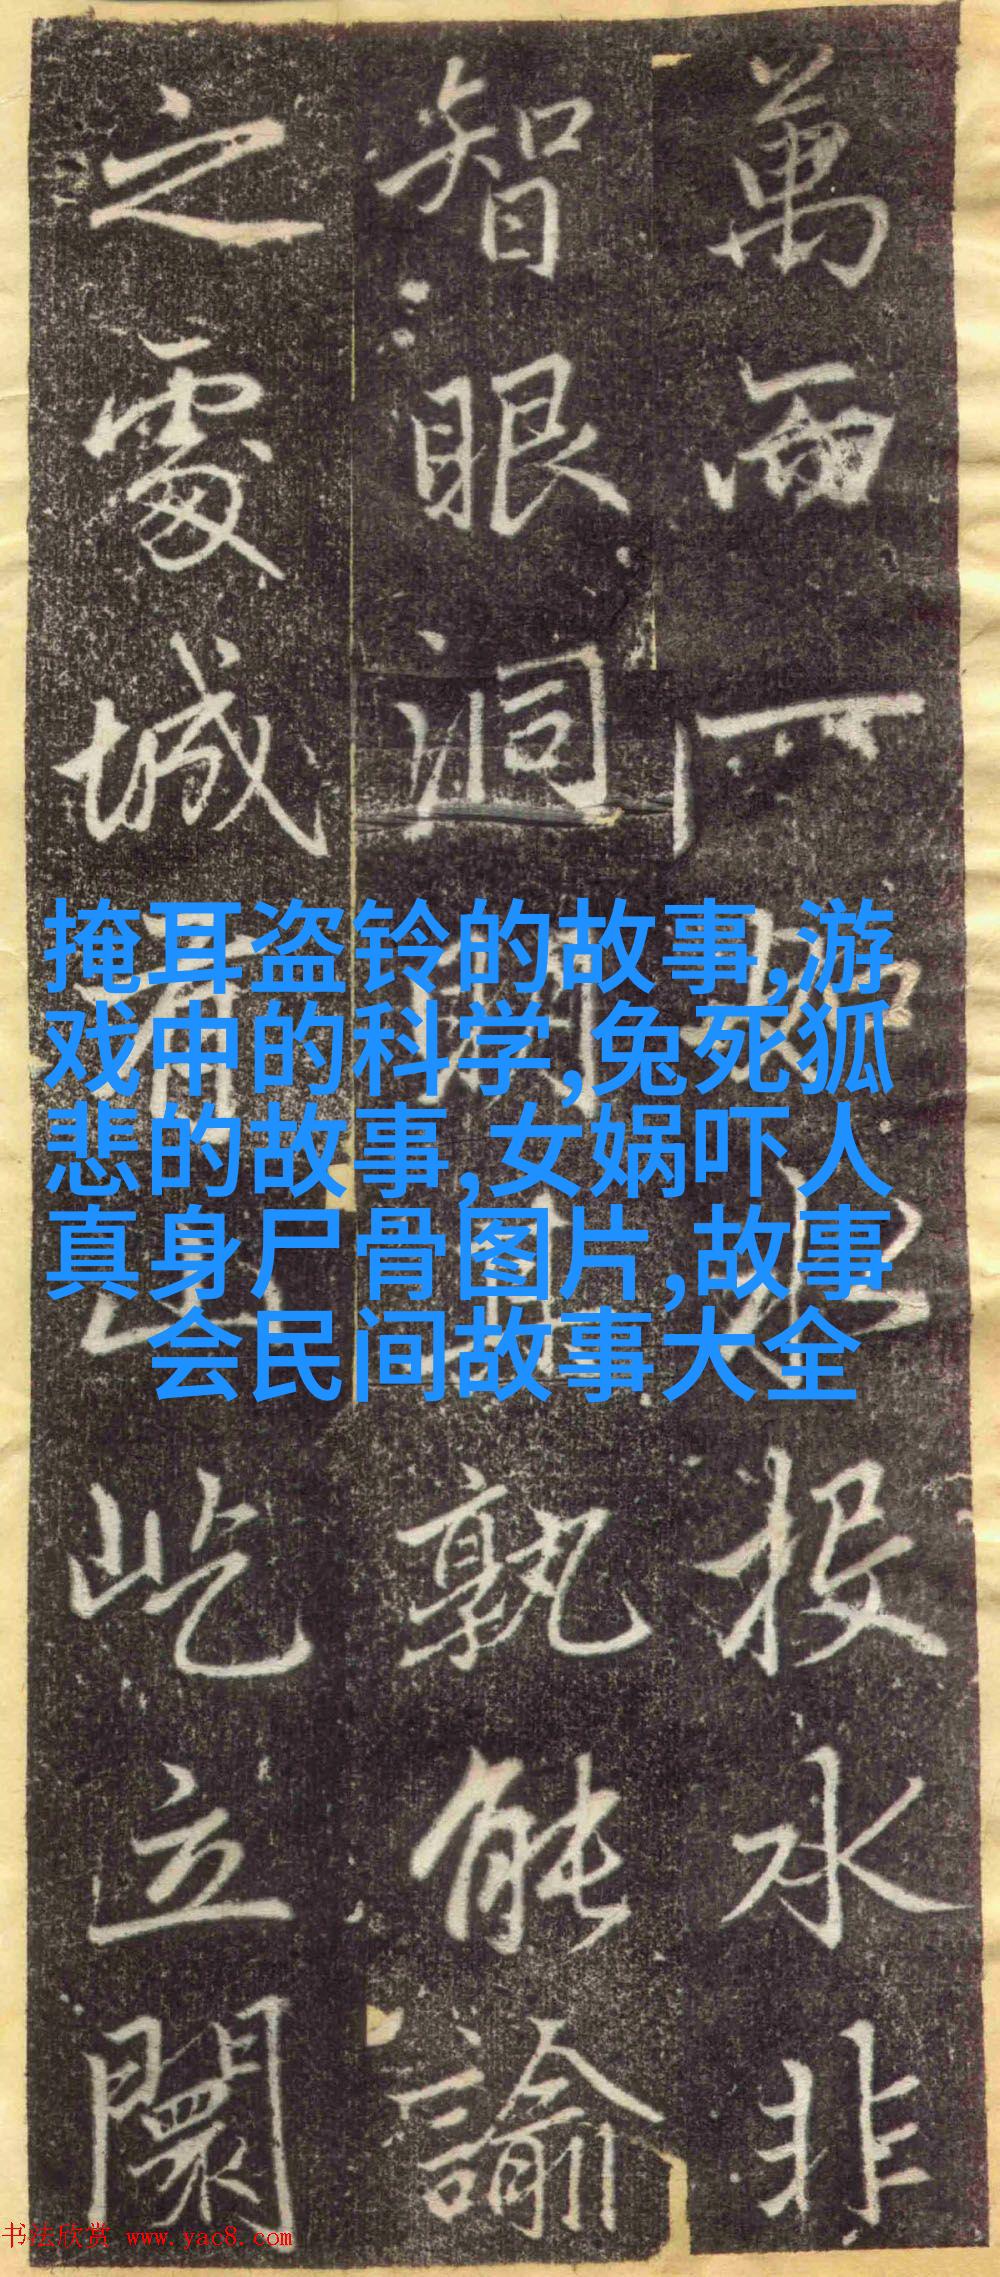 萬而投水非
智眼洞孰能諭
之處城屹立闤
掩耳盗铃的故事,游
戏中的科学,兔死狐
悲的故事,女娲吓人
真身尸骨图片,故事
会民间故事大全
书法欣赏 www.yac8.com